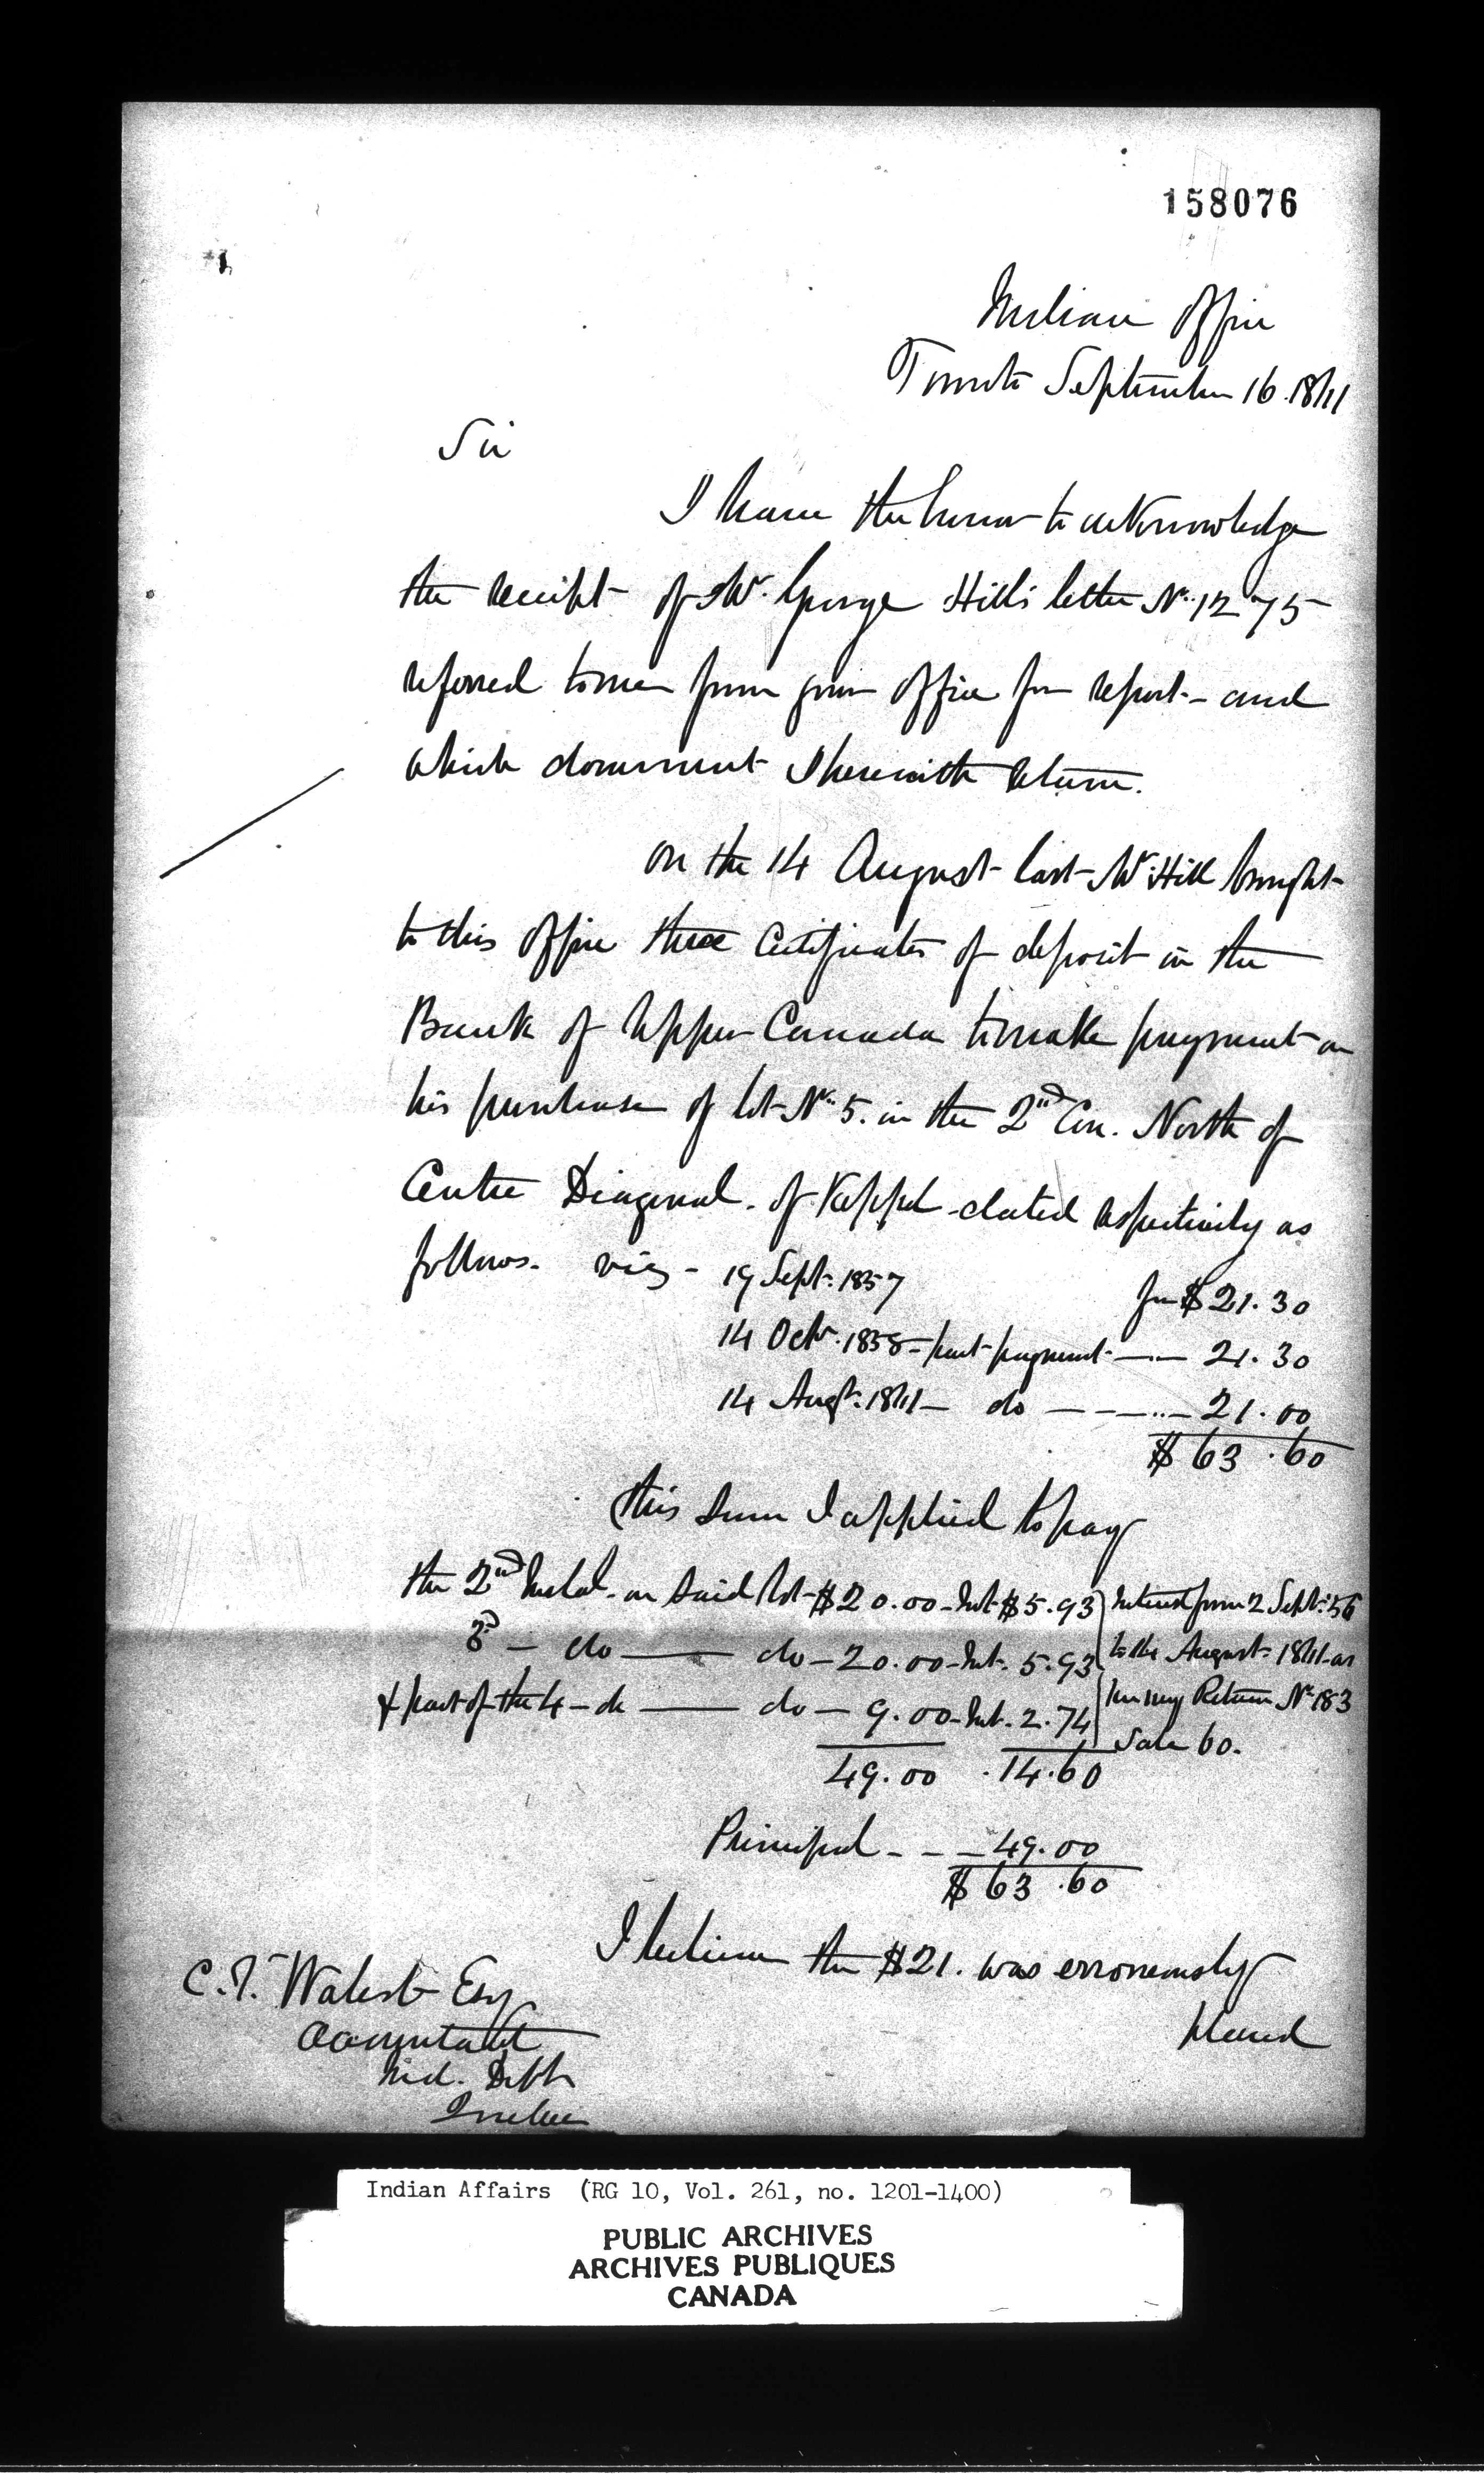 158076
Indian Office
Toronto September 16. 1861
Sir
I have the honor to acknowledge
the receipt of Mr. George Hill's letter No. 1275
referred to me from your office for report - and
which document I herewith return.
on the 14 August last Mr. Hill brought
to this office three Certificates of deposit in the
Bank of Upper Canada to make payment on
his purchase of lot No. 5. in the 2nd Con. North of
Centre Diagonal. of Keppel - dated respectively as
follows. viz -
19 Sept. 1857 for $21.30
14 Octr. 1858 - part payment - 21.30
14 Augt. 1861 - do - 21.00
$63.60
This sum I applied to pay
the 2nd Instal. on said lot - $20.00 - Int. $5.93 Interest from 2 Sept. 56
3d - do - do - 20.00 - Int. 5.93 to 14 August 1861 as
& part of the 4 - do - do - 9.00 - Int. 2.74 per my Return No. 183
49.00 14.60 Sale 60.
Principal - - - 49.00
$63.60
I believe the $21. was erroneously
placed
C. T. Walcot Esq
Accountant
Ind. Dept
Quebec
Indian Affairs (RG 10, Vol. 261, no. 1201-1400)
PUBLIC ARCHIVES
ARCHIVES PUBLIQUES
CANADA